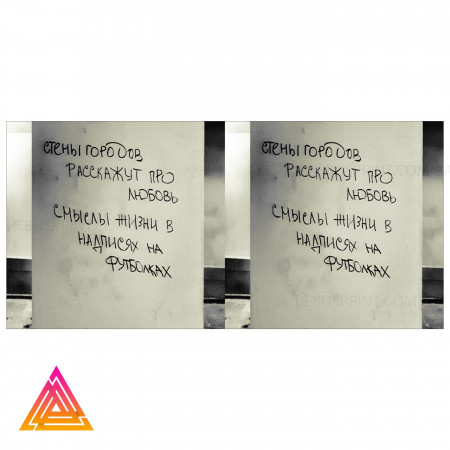 СТЕНЫ ГОРОДОВ
РАССКАЖУТ ПРО
ЛЮБОВЬ
СМЫСЛЫ ЖИЗНИ В
НАДПИСЯХ НА
ФУТБОЛКАХ
СТЕНЫ ГОРОДОВ
РАССКАЖУТ ПРО
ЛЮБОВЬ
СМЫСЛЫ ЖИЗНИ В
НАДПИСЯХ НА
ФУТБОЛКАХ